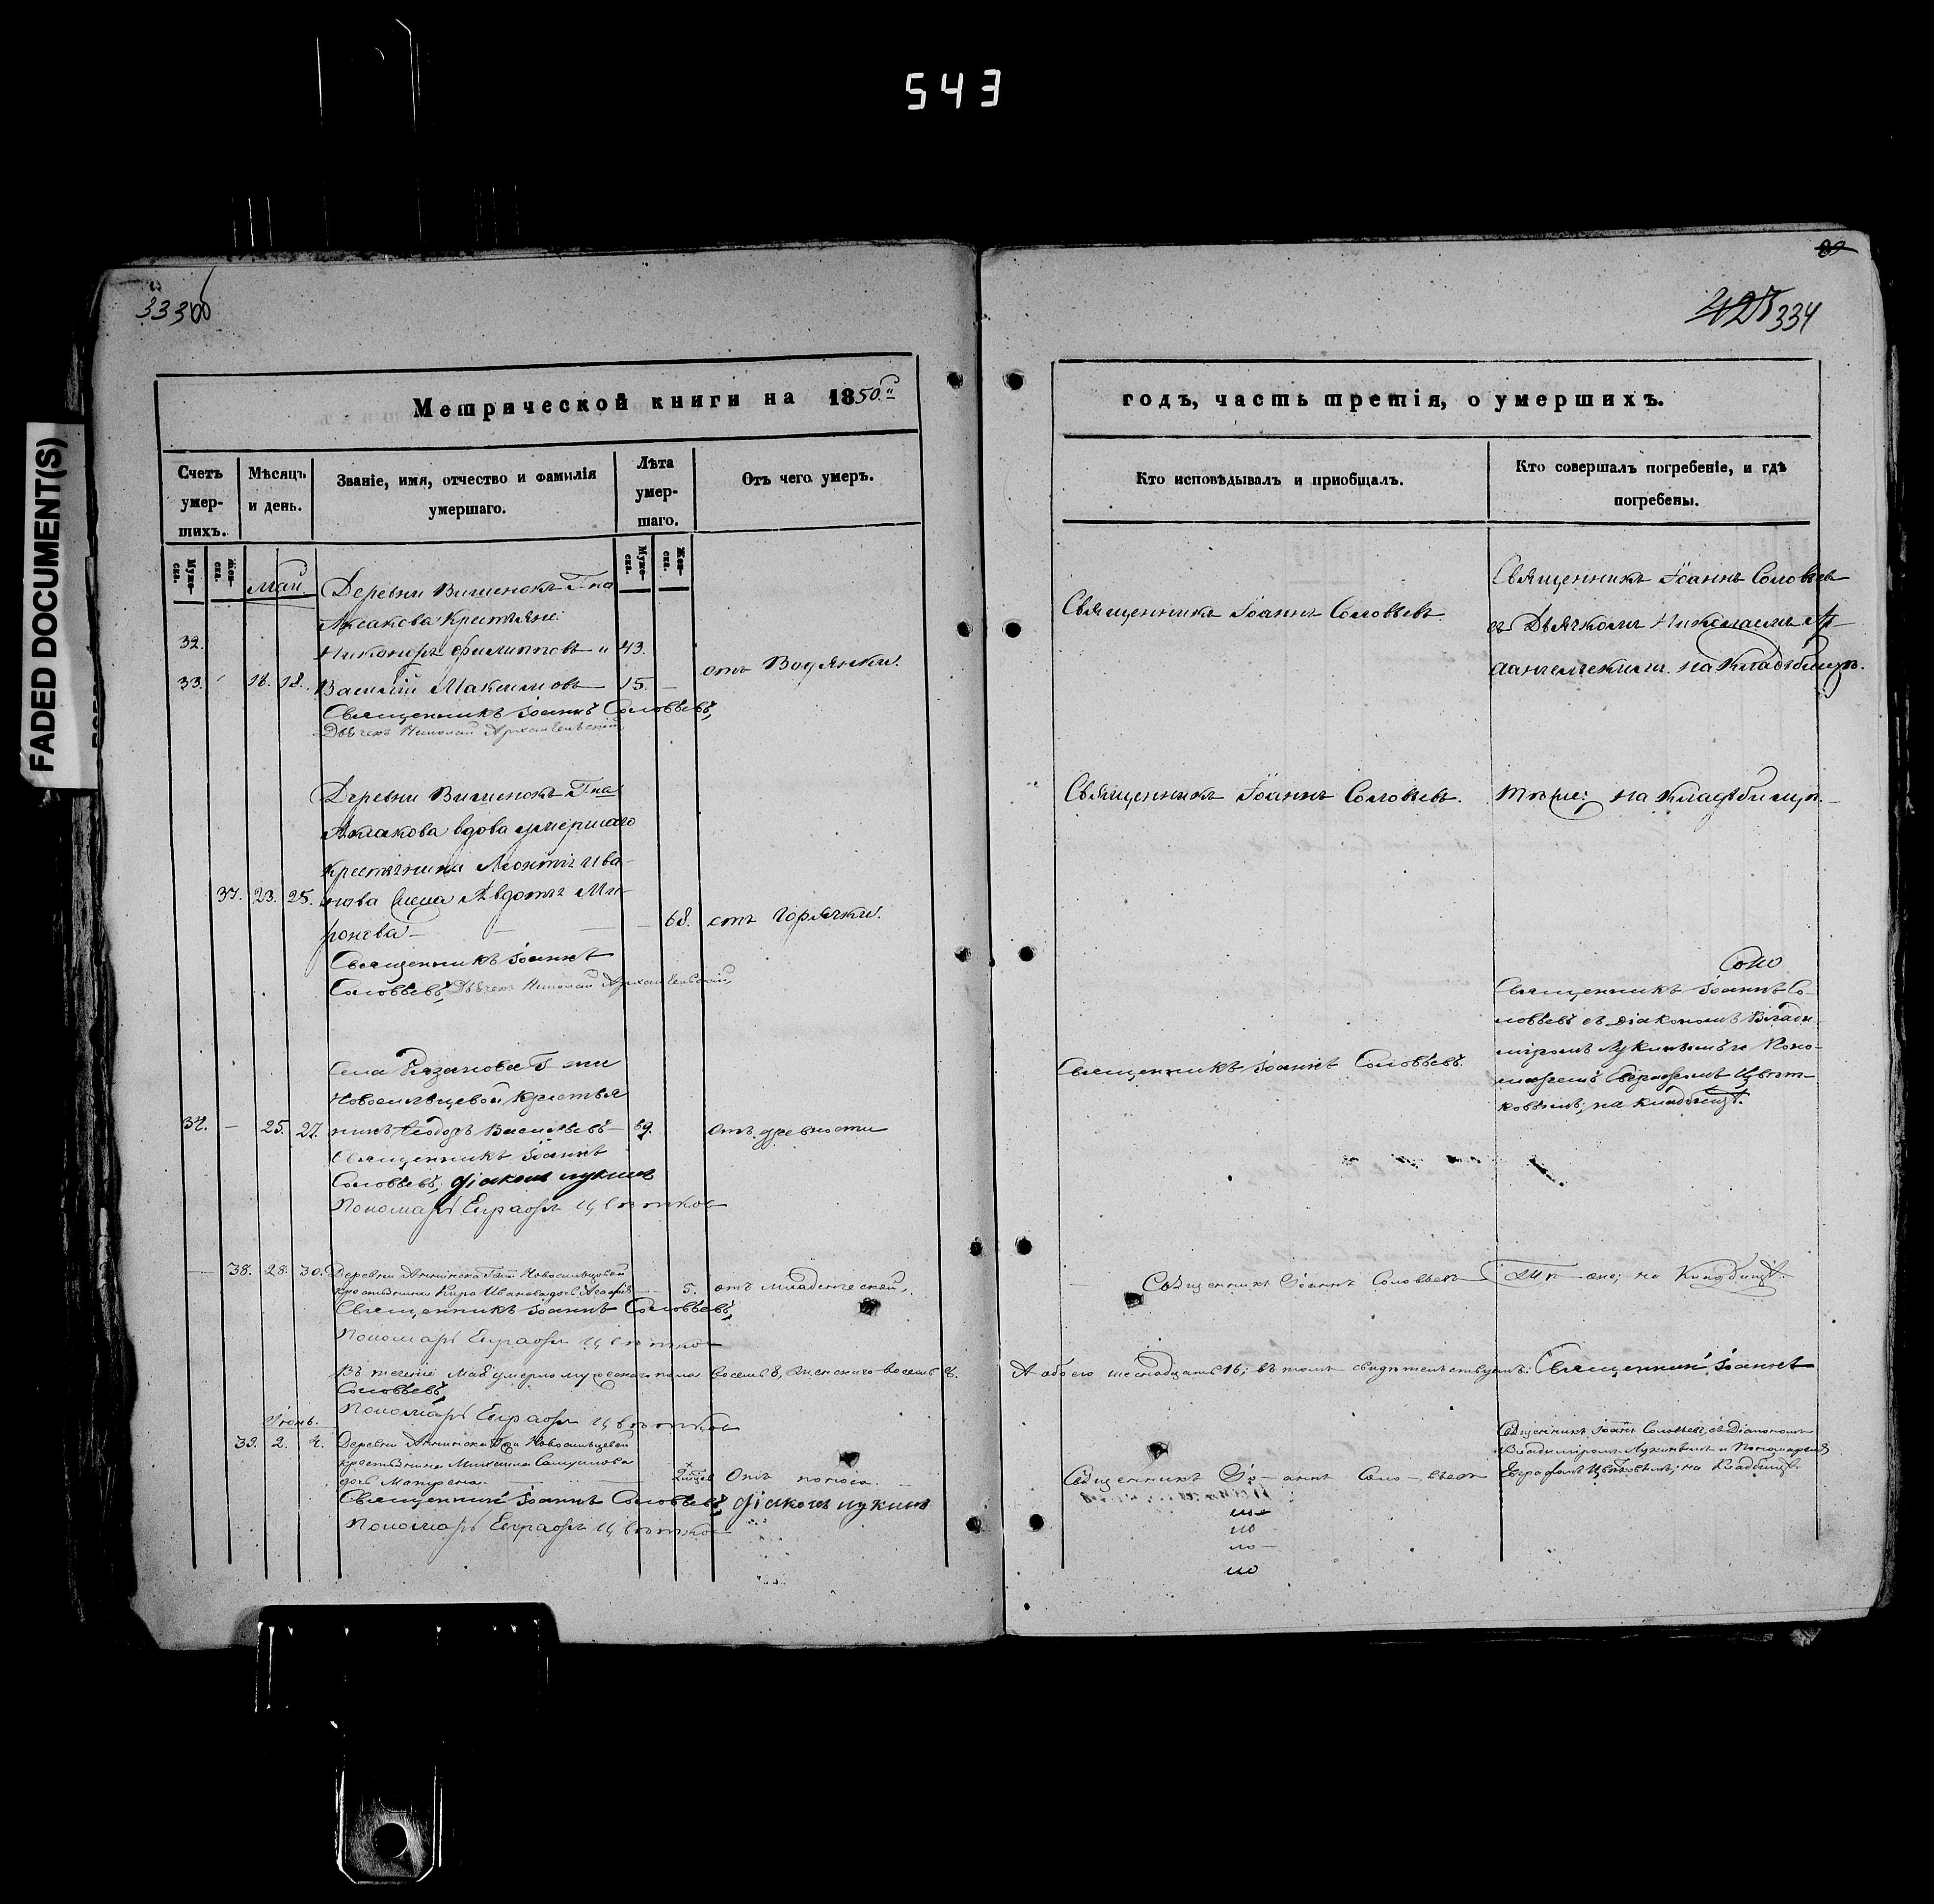 543
FADED DOCUMENT(S)
333об
89
427 334
Метрической книги на 1850й
годъ, часть третія, о умершихъ.
Счетъ умер-шихъ.
Мѣсяцъ и день.
Званіе, имя, отчество и фамилія умершаго.
Лѣта умер-шаго.
Отъ чего умеръ.
Кто исповѣдывалъ и приобщалъ.
Кто совершалъ погребеніе, и гдѣ погребены.
Муже-ска.
Жен-ска.
Муже-ска.
Жен-ска.
Май
Деревни Вишенокъ Г-на
Аксакова Крестьяне:
32. Никаноръ Филипповъ 43.
33. 16. 18. Василій Максимовъ 15. отъ Водянки.
Священникъ Іоаннъ Соловьевъ,
Дьячекъ Николай Архангельскій
Священникъ Іоаннъ Соловьевъ.
Священникъ Іоаннъ Соловьевъ
съ Дьячкомъ Николаемъ Ар-
хангельскимъ на Кладбищѣ.
Деревни Вишенокъ Г-на
Аксакова вдова умершаго
крестьянина Леонтія Ива-
37. 23. 25. нова жена Авдотья Ми-
ронова 68. отъ горячки.
Священникъ Іоаннъ
Соловьевъ, Дьячекъ Николай Архангельскій,
Священникъ Іоаннъ Соловьевъ.
Тѣ же: на Кладбищѣ.
Села Рязанова Г-жи
Новосильцевой крестья
34. – 25. 27. нинъ Ѳеодоръ Васильевъ 69. отъ древности
Священникъ Іоаннъ
Соловьевъ, діаконъ Лукинъ
Пономарь Евграфъ Цвѣтковъ
Священникъ Іоаннъ Соловьевъ.
Священникъ Іоаннъ Со-
ловьевъ съ діакономъ Влади
міромъ Лукинымъ и Поно-
маремъ Евграфомъ Цвѣт-
ковымъ; на кладбищѣ.
38. 28. 30. Деревни Аннинска Г-жи Новосильцовой
крестьянина Кира Иванова дочь 5. отъ младенческой.
Священникъ Іоаннъ Соловьевъ,
Пономарь Евграфъ Цвѣтков
Священникъ Іоаннъ Соловьевъ
на Кладбищѣ.
Въ теченіе Мая умерло мужескаго пола восемь 8, женскаго восемь 8.
А обоего шестнадцать 16; въ томъ свидѣтельствуемъ: Священникъ Іоаннъ
Соловьевъ,
Пономарь Евграфъ Цвѣтков
Іюнь.
39. 2. 4. Деревни Аннинска Г-жи Новосильцевой
крестьянина Михаила Самуилова
дочь Матрена. 2 Отъ поноса.
Священникъ Іоаннъ Соловьевъ, діаконъ Лукинъ
Пономарь Евграфъ Цвѣтков
Священникъ Іоаннъ Соловьевъ
Священникъ Іоаннъ Соловьевъ, съ Діакономъ
Владиміромъ Лукинымъ и Пономаремъ
Евграфомъ Цвѣтковымъ; на Кладбищѣ.